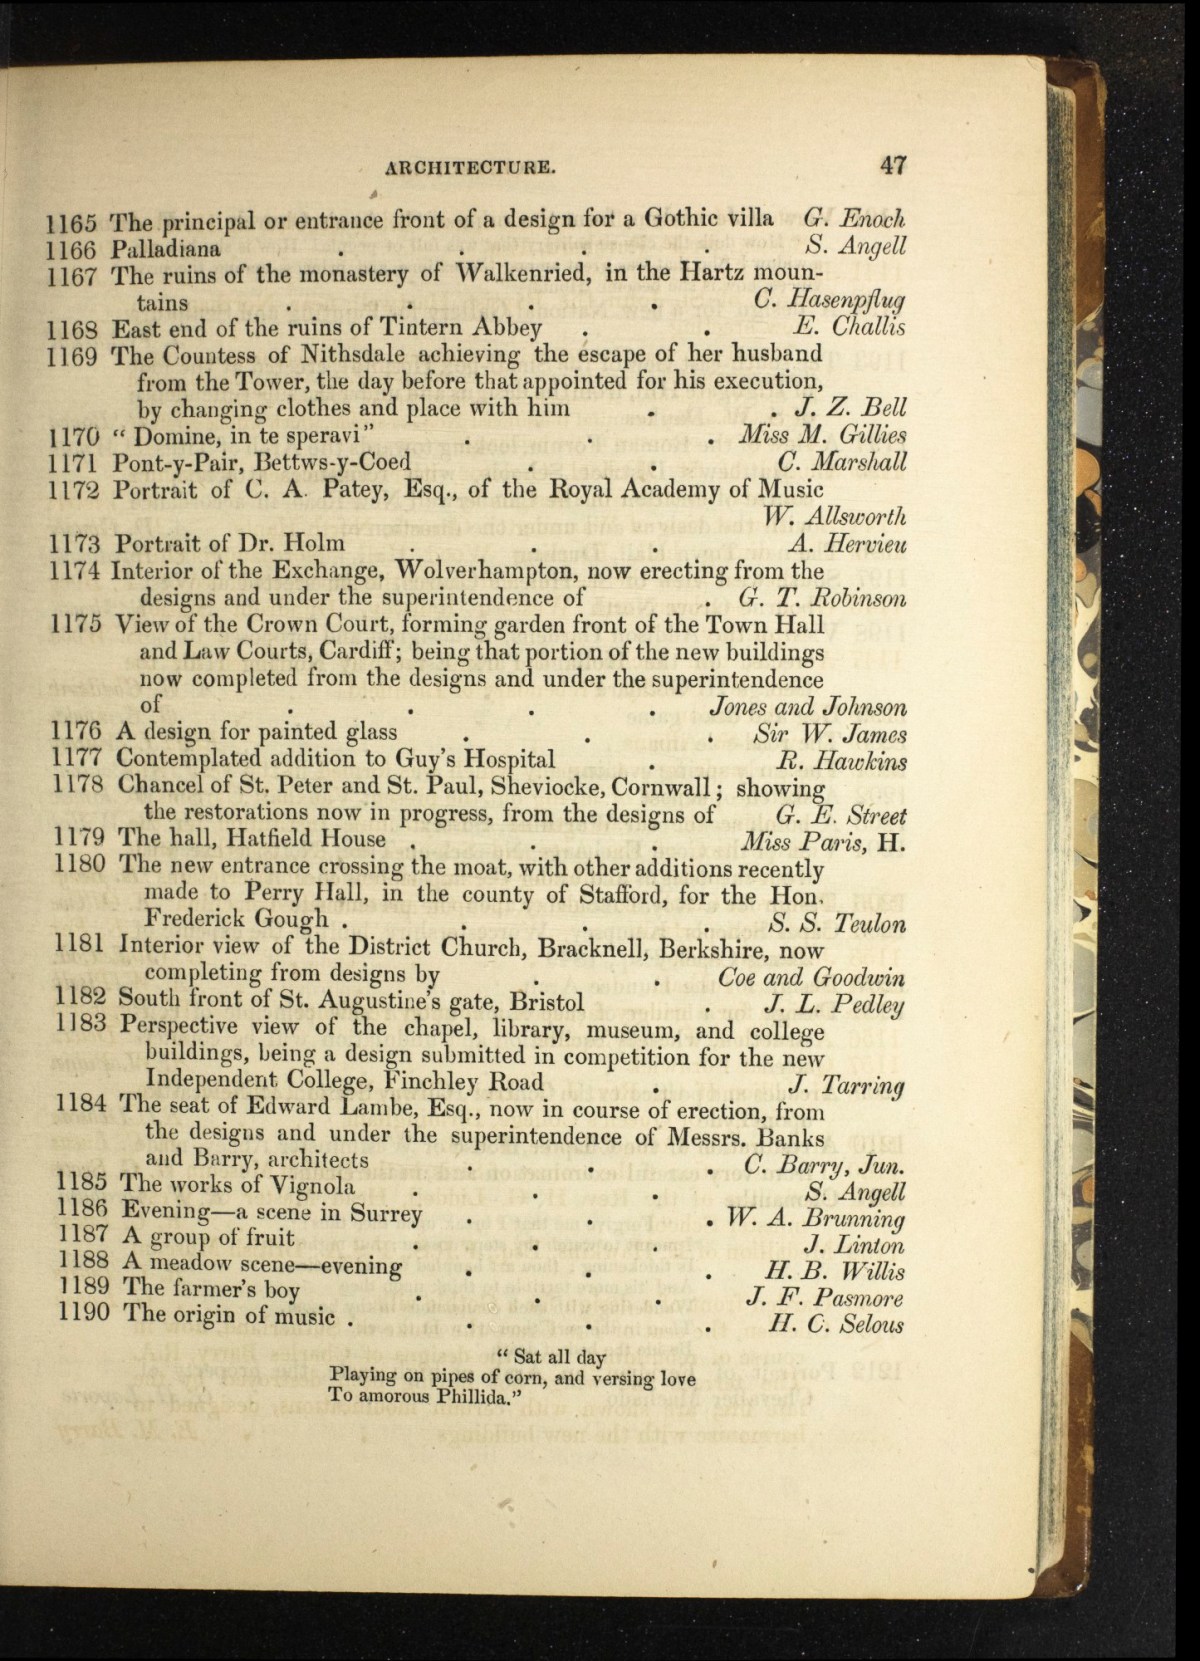 ARCHITECTURE. 47
1165 The principal or entrance front of a design for a Gothic villa G. Enoch
1166 Palladiana . . . . S. Angell
1167 The ruins of the monastery of Walkenried, in the Hartz moun-
tains . . . . C. Hasenpflug
1168 East end of the ruins of Tintern Abbey . . E. Challis
1169 The Countess of Nithsdale achieving the escape of her husband
from the Tower, the day before that appointed for his execution,
by changing clothes and place with him . . J. Z. Bell
1170 “ Domine, in te speravi” . . . Miss M. Gillies
1171 Pont-y-Pair, Bettws-y-Coed . . C. Marshall
1172 Portrait of C. A. Patey, Esq., of the Royal Academy of Music
W. Allsworth
1173 Portrait of Dr. Holm . . . A. Hervieu
1174 Interior of the Exchange, Wolverhampton, now erecting from the
designs and under the superintendence of . G. T. Robinson
1175 View of the Crown Court, forming garden front of the Town Hall
and Law Courts, Cardiff; being that portion of the new buildings
now completed from the designs and under the superintendence
of . . . . Jones and Johnson
1176 A design for painted glass . . . Sir W. James
1177 Contemplated addition to Guy's Hospital . R. Hawkins
1178 Chancel of St. Peter and St. Paul, Sheviocke, Cornwall; showing
the restorations now in progress, from the designs of G. E. Street
1179 The hall, Hatfield House . . . Miss Paris, H.
1180 The new entrance crossing the moat, with other additions recently
made to Perry Hall, in the county of Stafford, for the Hon.
Frederick Gough . . . . S. S. Teulon
1181 Interior view of the District Church, Bracknell, Berkshire, now
completing from designs by . . Coe and Goodwin
1182 South front of St. Augustine's gate, Bristol . J. L. Pedley
1183 Perspective view of the chapel, library, museum, and college
buildings, being a design submitted in competition for the new
Independent College, Finchley Road . J. Tarring
1184 The seat of Edward Lambe, Esq., now in course of erection, from
the designs and under the superintendence of Messrs. Banks
and Barry, architects . . . C. Barry, Jun.
1185 The works of Vignola . . . S. Angell
1186 Evening—a scene in Surrey . . . W. A. Brunning
1187 A group of fruit . . . J. Linton
1188 A meadow scene—evening . . . H. B. Willis
1189 The farmer's boy . . . J. F. Pasmore
1190 The origin of music . . . . H. C. Selous
“ Sat all day
Playing on pipes of corn, and versing love
To amorous Phillida.”